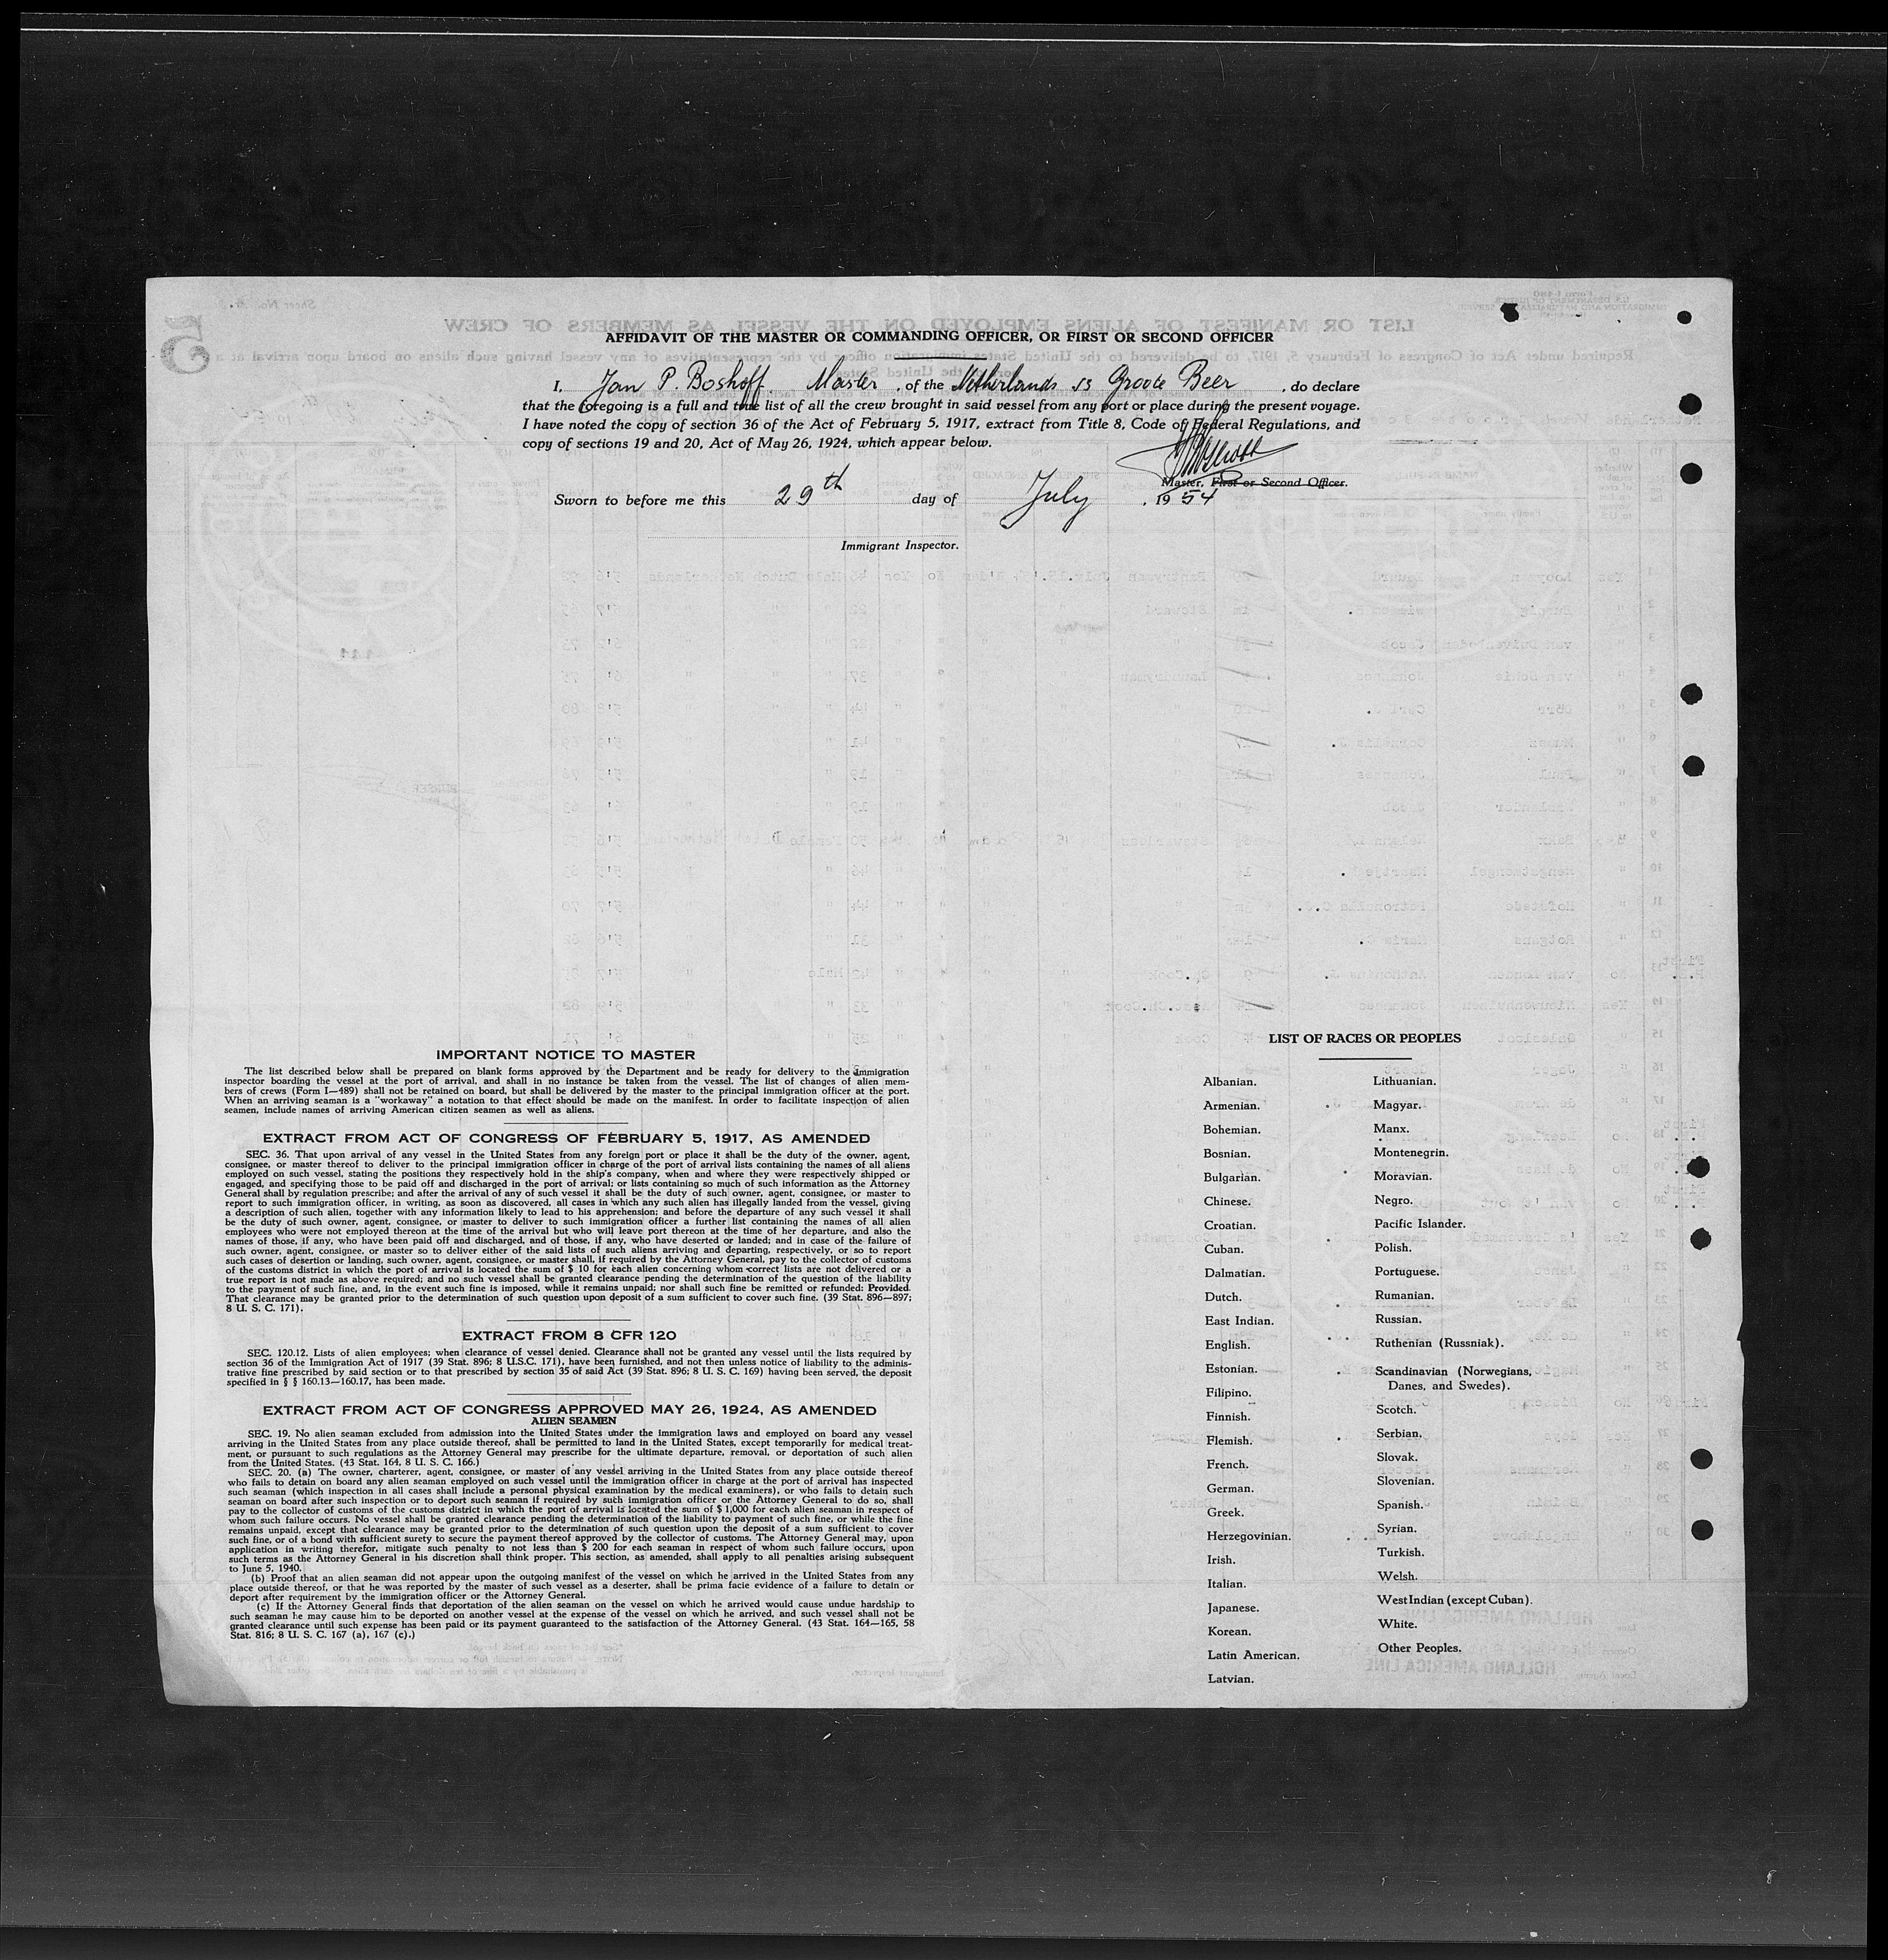 AFFIDAVIT OF THE MASTER OR COMMANDING OFFICER, OR FIRST OR SECOND OFFICER
I, Jan P. Boshoff Master , of the Netherlands ss Groote Beer , do declare
that the foregoing is a full and true list of all the crew brought in said vessel from any port or place during the present voyage.
I have noted the copy of section 36 of the Act of February 5, 1917, extract from Title 8, Code of Federal Regulations, and
copy of sections 19 and 20, Act of May 26, 1924, which appear below.
Master, First or Second Officer.
Sworn to before me this 29th day of July , 1954
Immigrant Inspector.
IMPORTANT NOTICE TO MASTER
The list described below shall be prepared on blank forms approved by the Department and be ready for delivery to the immigration
inspector boarding the vessel at the port of arrival, and shall in no instance be taken from the vessel. The list of changes of alien mem-
bers of crews (Form I—489) shall not be retained on board, but shall be delivered by the master to the principal immigration officer at the port.
When an arriving seaman is a "workaway" a notation to that effect should be made on the manifest. In order to facilitate inspection of alien
seamen, include names of arriving American citizen seamen as well as aliens.
EXTRACT FROM ACT OF CONGRESS OF FEBRUARY 5, 1917, AS AMENDED
SEC. 36. That upon arrival of any vessel in the United States from any foreign port or place it shall be the duty of the owner, agent,
consignee, or master thereof to deliver to the principal immigration officer in charge of the port of arrival lists containing the names of all aliens
employed on such vessel, stating the positions they respectively hold in the ship's company, when and where they were respectively shipped or
engaged, and specifying those to be paid off and discharged in the port of arrival; or lists containing so much of such information as the Attorney
General shall by regulation prescribe; and after the arrival of any of such vessel it shall be the duty of such owner, agent, consignee, or master to
report to such immigration officer, in writing, as soon as discovered, all cases in which any such alien has illegally landed from the vessel, giving
a description of such alien, together with any information likely to lead to his apprehension; and before the departure of any such vessel it shall
be the duty of such owner, agent, consignee, or master to deliver to such immigration officer a further list containing the names of all alien
employees who were not employed thereon at the time of the arrival but who will leave port thereon at the time of her departure, and also the
names of those, if any, who have been paid off and discharged, and of those, if any, who have deserted or landed; and in case of the failure of
such owner, agent, consignee, or master so to deliver either of the said lists of such aliens arriving and departing, respectively, or so to report
such cases of desertion or landing, such owner, agent, consignee, or master shall, if required by the Attorney General, pay to the collector of customs
of the customs district in which the port of arrival is located the sum of $ 10 for each alien concerning whom correct lists are not delivered or a
true report is not made as above required; and no such vessel shall be granted clearance pending the determination of the question of the liability
to the payment of such fine, and, in the event such fine is imposed, while it remains unpaid; nor shall such fine be remitted or refunded: Provided.
That clearance may be granted prior to the determination of such question upon deposit of a sum sufficient to cover such fine. (39 Stat. 896—897;
8 U. S. C. 171).
EXTRACT FROM 8 CFR 120
SEC. 120.12. Lists of alien employees; when clearance of vessel denied. Clearance shall not be granted any vessel until the lists required by
section 36 of the Immigration Act of 1917 (39 Stat. 896; 8 U.S.C. 171), have been furnished, and not then unless notice of liability to the adminis-
trative fine prescribed by said section or to that prescribed by section 35 of said Act (39 Stat. 896; 8 U. S. C. 169) having been served, the deposit
specified in § § 160.13—160.17, has been made.
EXTRACT FROM ACT OF CONGRESS APPROVED MAY 26, 1924, AS AMENDED
ALIEN SEAMEN
SEC. 19. No alien seaman excluded from admission into the United States under the immigration laws and employed on board any vessel
arriving in the United States from any place outside thereof, shall be permitted to land in the United States, except temporarily for medical treat-
ment, or pursuant to such regulations as the Attorney General may prescribe for the ultimate departure, removal, or deportation of such alien
from the United States. (43 Stat. 164, 8 U. S. C. 166.)
SEC. 20. (a) The owner, charterer, agent, consignee, or master of any vessel arriving in the United States from any place outside thereof
who fails to detain on board any alien seaman employed on such vessel until the immigration officer in charge at the port of arrival has inspected
such seaman (which inspection in all cases shall include a personal physical examination by the medical examiners), or who fails to detain such
seaman on board after such inspection or to deport such seaman if required by such immigration officer or the Attorney General to do so, shall
pay to the collector of customs of the customs district in which the port of arrival is located the sum of $ 1,000 for each alien seaman in respect of
whom such failure occurs. No vessel shall be granted clearance pending the determination of the liability to payment of such fine, or while the fine
remains unpaid, except that clearance may be granted prior to the determination of such question upon the deposit of a sum sufficient to cover
such fine, or of a bond with sufficient surety to secure the payment thereof approved by the collector of customs. The Attorney General may, upon
application in writing therefor, mitigate such penalty to not less than $ 200 for each seaman in respect of whom such failure occurs, upon
such terms as the Attorney General in his discretion shall think proper. This section, as amended, shall apply to all penalties arising subsequent
to June 5, 1940.
(b) Proof that an alien seaman did not appear upon the outgoing manifest of the vessel on which he arrived in the United States from any
place outside thereof, or that he was reported by the master of such vessel as a deserter, shall be prima facie evidence of a failure to detain or
deport after requirement by the immigration officer or the Attorney General.
(c) If the Attorney General finds that deportation of the alien seaman on the vessel on which he arrived would cause undue hardship to
such seaman he may cause him to be deported on another vessel at the expense of the vessel on which he arrived, and such vessel shall not be
granted clearance until such expense has been paid or its payment guaranteed to the satisfaction of the Attorney General. (43 Stat. 164—165, 58
Stat. 816; 8 U. S. C. 167 (a), 167 (c).)
LIST OF RACES OR PEOPLES
Albanian.
Armenian.
Bohemian.
Bosnian.
Bulgarian.
Chinese.
Croatian.
Cuban.
Dalmatian.
Dutch.
East Indian.
English.
Estonian.
Filipino.
Finnish.
Flemish.
French.
German.
Greek.
Herzegovinian.
Irish.
Italian.
Japanese.
Korean.
Latin American.
Latvian.
Lithuanian.
Magyar.
Manx.
Montenegrin.
Moravian.
Negro.
Pacific Islander.
Polish.
Portuguese.
Rumanian.
Russian.
Ruthenian (Russniak).
Scandinavian (Norwegians,
Danes, and Swedes).
Scotch.
Serbian.
Slovak.
Slovenian.
Spanish.
Syrian.
Turkish.
Welsh.
West Indian (except Cuban).
White.
Other Peoples.